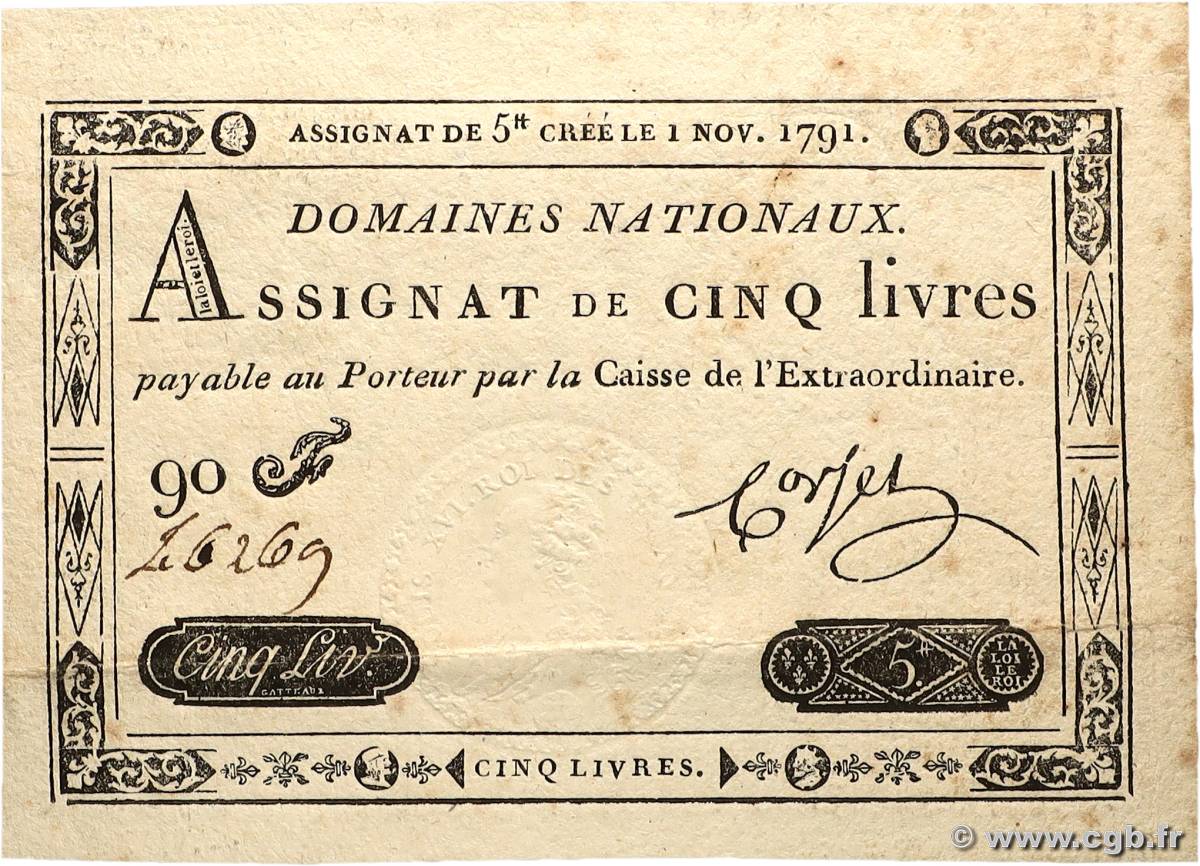 ASSIGNAT DE 5tt CRÉÉ LE 1 NOV. 1791.
DOMAINES NATIONAUX.
ASSIGNAT DE CINQ livres
la loi et le roi.
payable au Porteur par la Caisse de l'Extraordinaire.
90 F
26269
Corsel
XVI. ROI DES
Cinq Liv.
GATTEAUX
5tt
LA
LOI
LE
ROI
CINQ LIVRES.
© www.cgb.fr